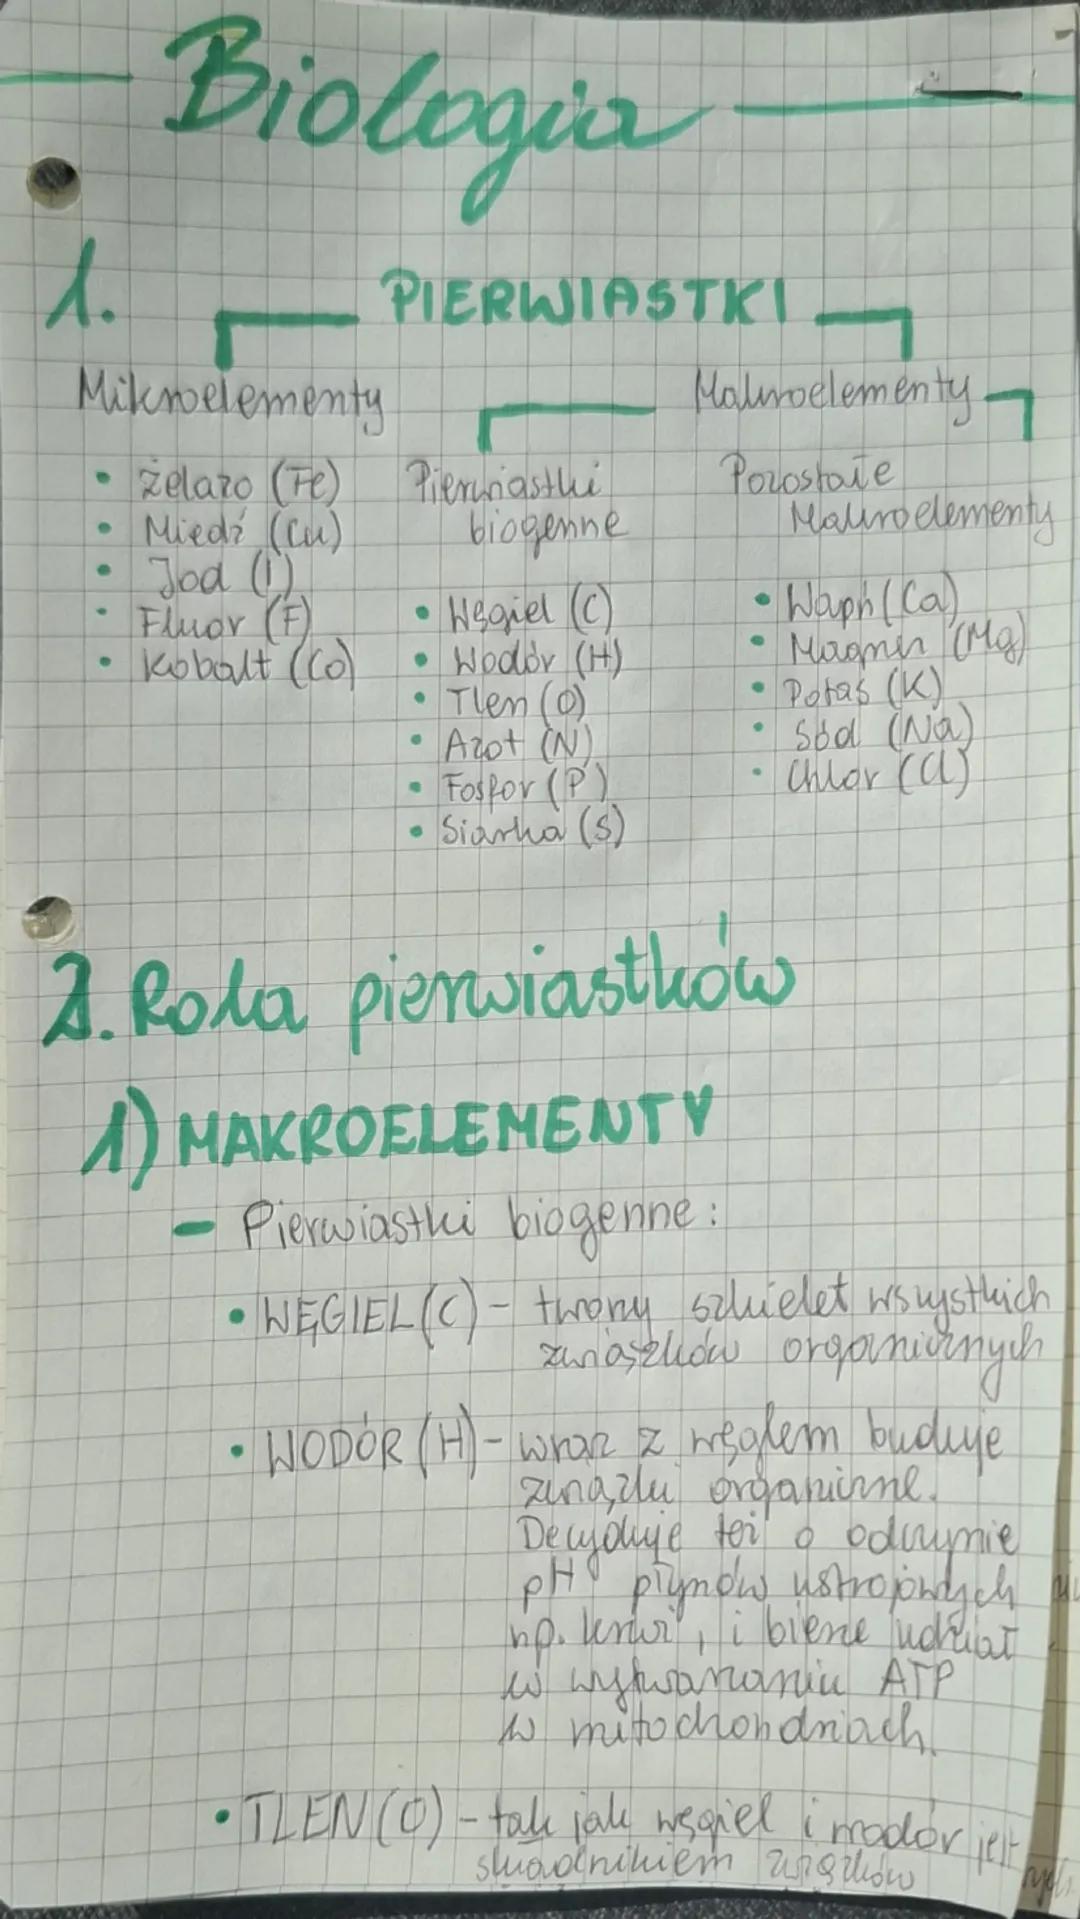 Biologia
1. PIERWIASTKI
Mikroelementy
• Żelazo (Fe)
• Miedź (Cu)
• Jod (I)
• Fluor (F)
• Kobalt (Co)
Makroelementy
Pierwiastki
biogenne
• Węgiel (C)
• Wodór (H)
• Tlen (O)
• Azot (N)
• Fosfor (P)
• Siarka (S)
Pozostałe
Makroelementy
• Wapń (Ca)
• Magnez (Mg)
• Potas (K)
• Sód (Na)
• Chlor (Cl)
2. Rola pierwiastków
1) MAKROELEMENTY
– Pierwiastki biogenne:
• WĘGIEL (C) – tworzy szkielet wszystkich
związków organicznych
• WODÓR (H) – wraz z węglem buduje
związki organiczne.
Decyduje też o odczynie
pH płynów ustrojowych
np. krwi, i bierze udział
w wytwarzaniu ATP
w mitochondriach.
• TLEN (O) – tak jak węgiel i wodór jest
składnikiem związków